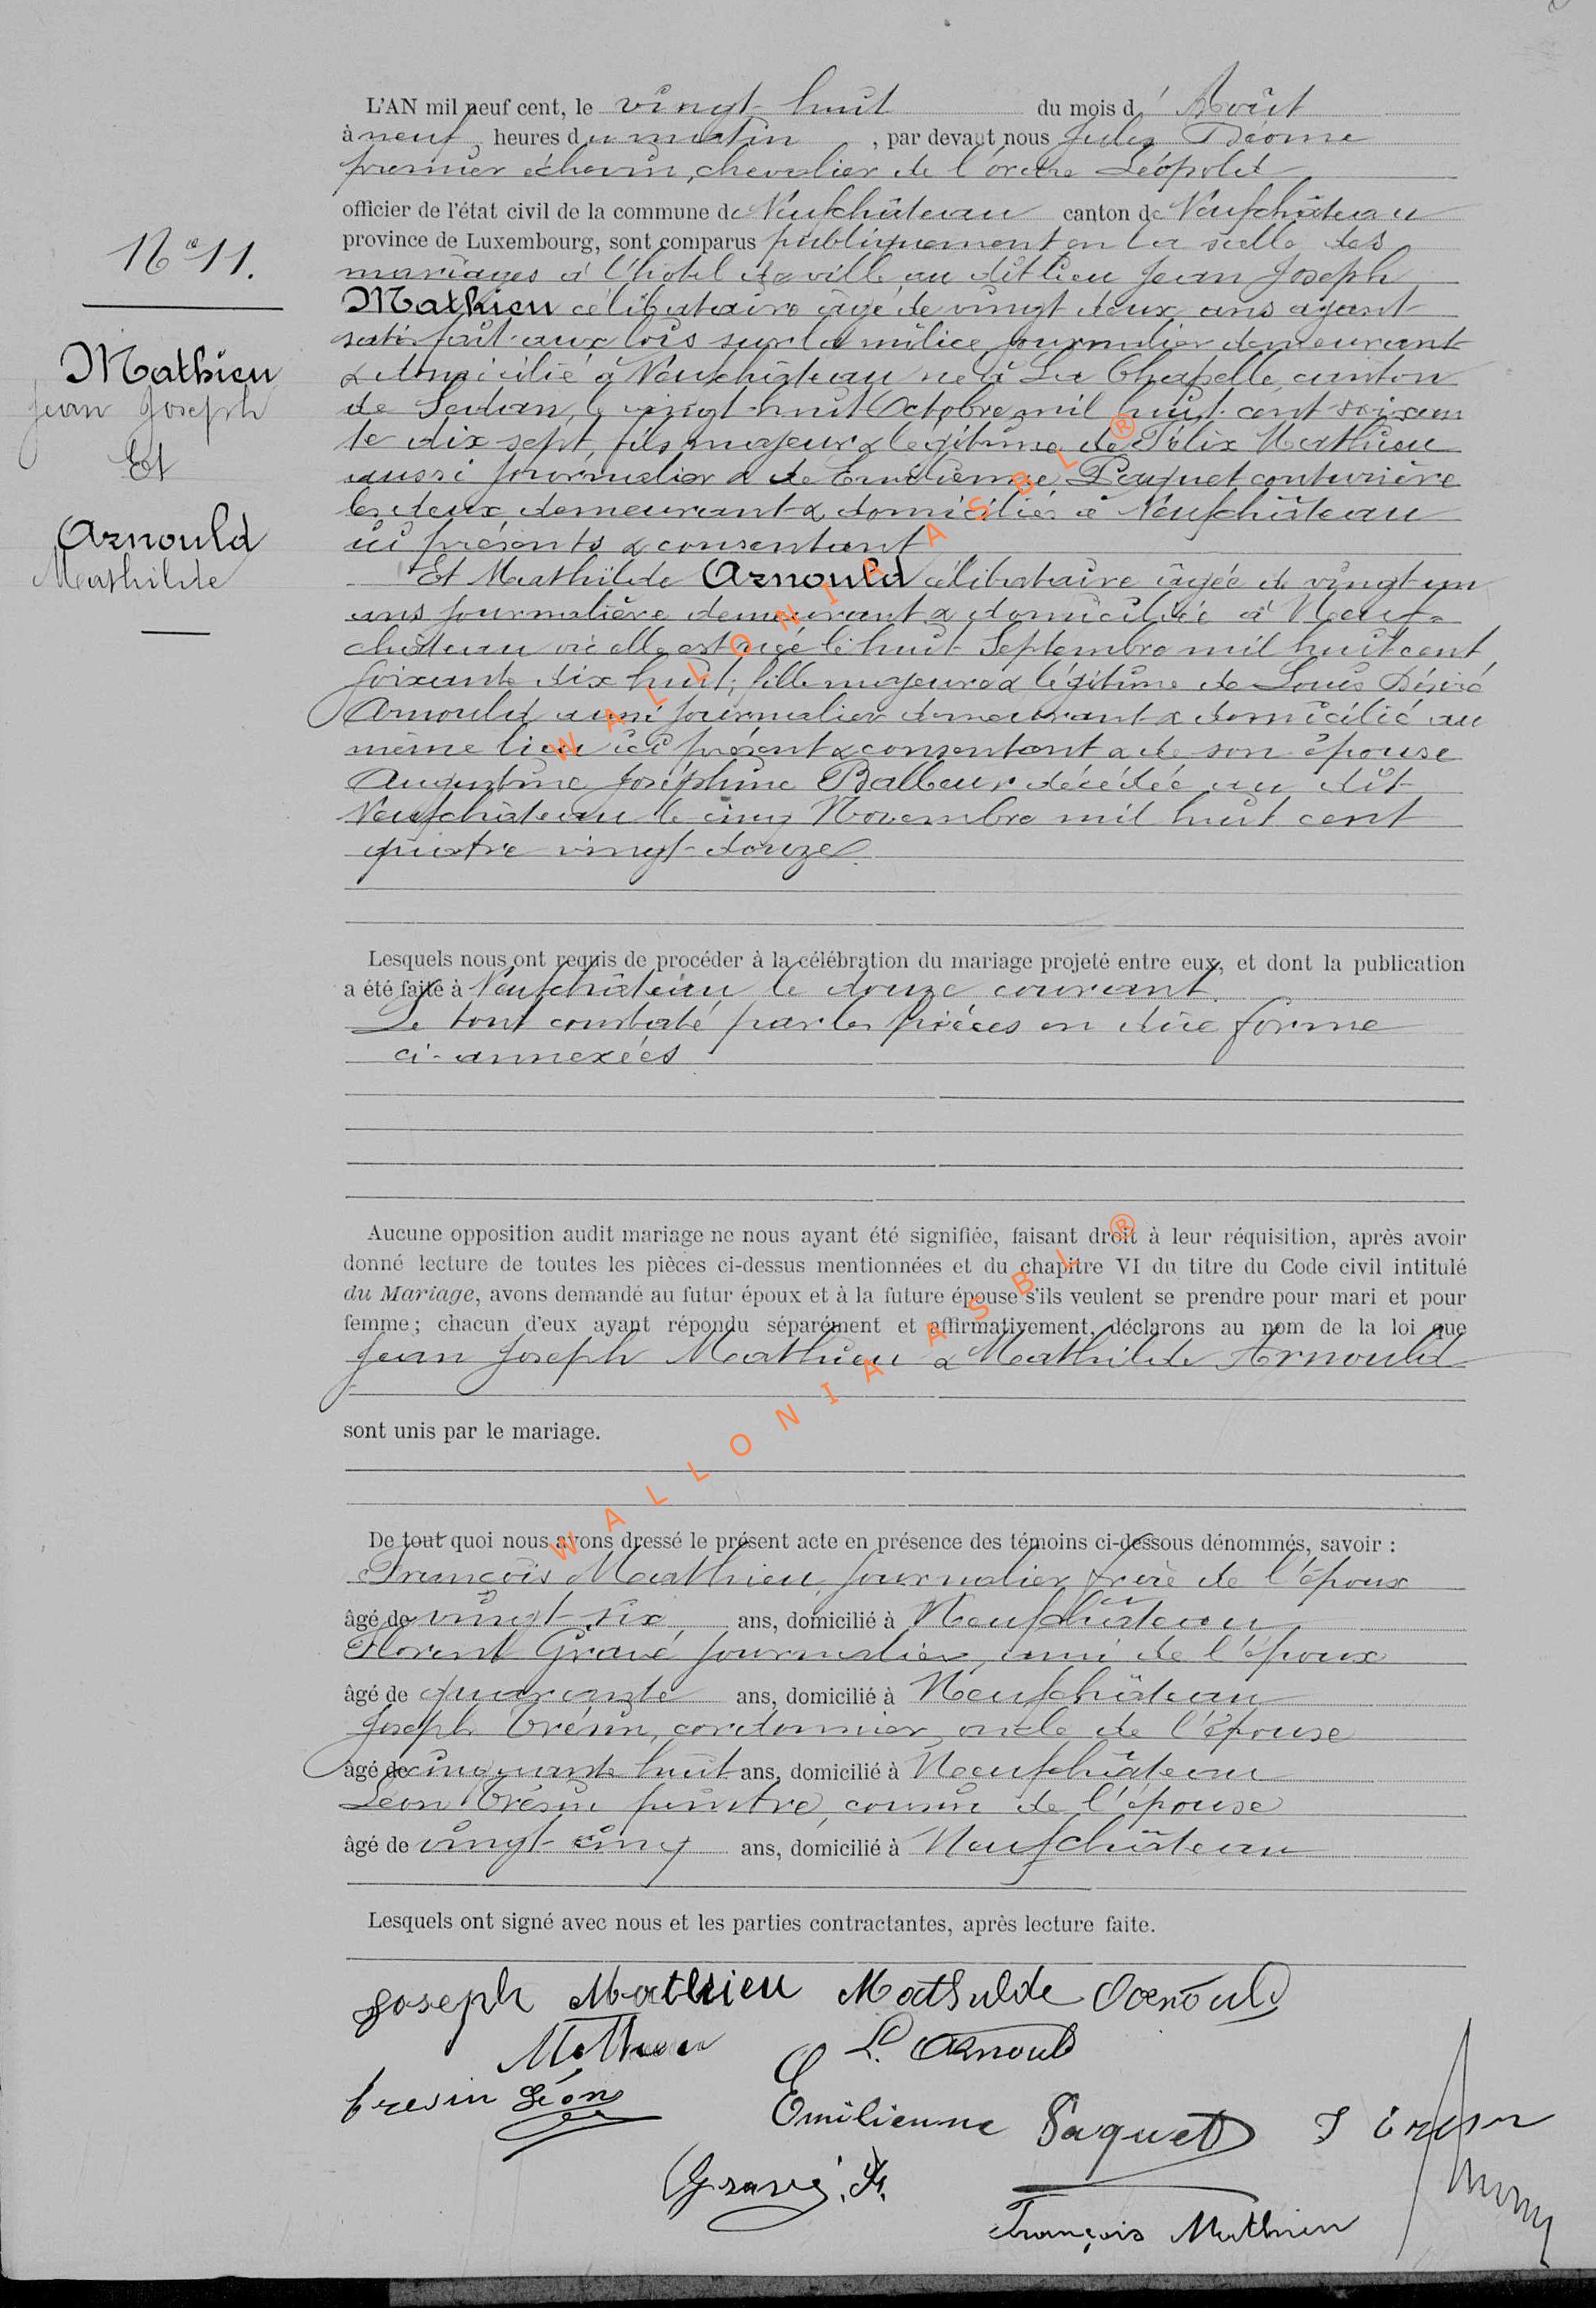 L'AN mil neuf cent, le vingt-huit du mois d' Août
à neuf heures du matin, par devant nous Jules Déome
premier échevin, chevalier de l'ordre Léopold
officier de l'état civil de la commune de Neufchâteau canton de Neufchâteau
province de Luxembourg, sont comparus publiquement en la salle des
mariages à l'hotel de ville au dit lieu Jean Joseph
Mathieu célibataire âgé de vingt deux ans ayant
satisfait aux lois sur la milice journalier demeurant
& domicilié à Neufchâteau né à La Chapelle, canton
de Sedan, le vingt-huit Octobre mil huit cent soixan
te dix sept, fils majeur & légitime de Félix Mathieu
aussi journalier & de Emilienne Paquet couturière
les deux demeurant & domiciliés à Neufchâteau
ici présents & consentant
Et Mathilde Arnould célibataire âgée de vingt-un
ans journalière demeurant & domiciliée à Neuf-
château où elle est née le huit Septembre mil huit cent
soixante dix huit, fille majeure & légitime de Louis Désiré
Arnould aussi journalier demeurant & domicilié au
même lieu ici présent & consentant & de son épouse
Augustine Joséphine Balbeur décédée au dit
Neufchâteau le cinq Novembre mil huit cent
quatre vingt-douze.
Nº 11.
Mathieu
Jean Joseph
Et
Arnould
Mathilde
Lesquels nous ont requis de procéder à la célébration du mariage projeté entre eux, et dont la publication
a été faite à Neufchâteau le douze courant.
Le tout constaté par les pièces en dûe forme
ci-annexées
Aucune opposition audit mariage ne nous ayant été signifiée, faisant droit à leur réquisition, après avoir
donné lecture de toutes les pièces ci-dessus mentionnées et du chapitre VI du titre du Code civil intitulé
du Mariage, avons demandé au futur époux et à la future épouse s'ils veulent se prendre pour mari et pour
femme; chacun d'eux ayant répondu séparément et affirmativement, déclarons au nom de la loi que
Jean Joseph Mathieu & Mathilde Arnould
sont unis par le mariage.
De tout quoi nous avons dressé le présent acte en présence des témoins ci-dessous dénommés, savoir :
François Mathieu, journalier, frère de l'époux
âgé de vingt-six ans, domicilié à Neufchâteau
Florent Gravé journalier, ami de l'époux
âgé de quarante ans, domicilié à Neufchâteau
Joseph Trésin, cordonnier, oncle de l'épouse
âgé de cinquante huit ans, domicilié à Neufchâteau
Léon Trésin peintre, cousin de l'épouse
âgé de vingt-cinq ans, domicilié à Neufchâteau
Lesquels ont signé avec nous et les parties contractantes, après lecture faite.
Joseph Mathieu Mathilde Arnould
Mathieu L. Arnould
Tresin Léon
Emilienne Paquet J Tresin
Gravé. F.
François Mathieu
WALLONIA ASBL ®
WALLONIA ASBL ®